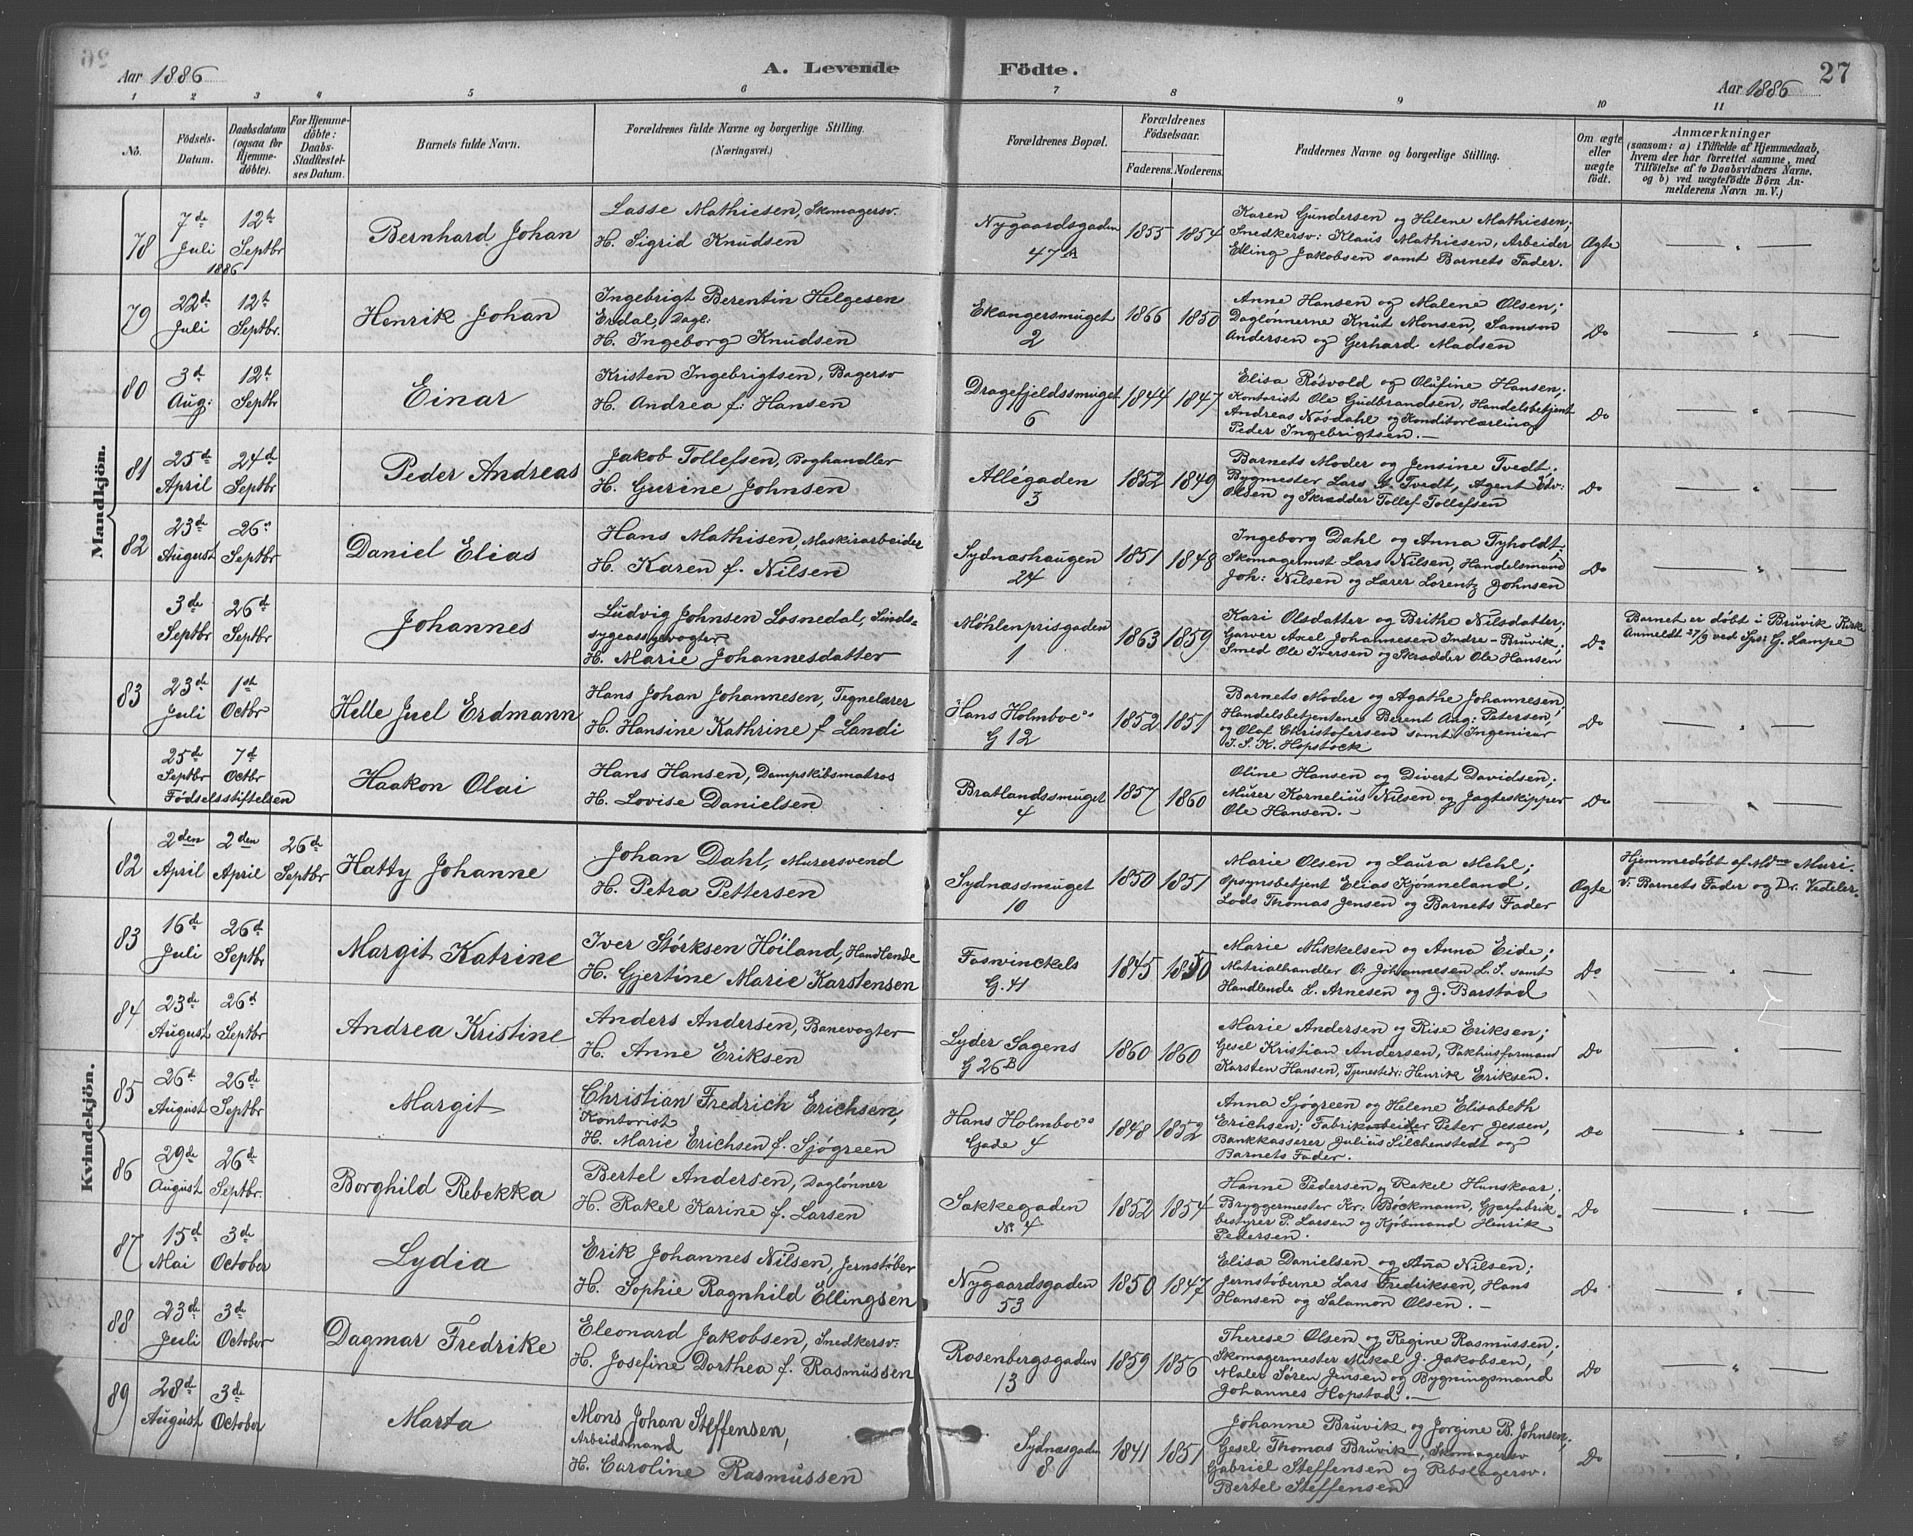 Aar 1886
A. Levende Födte.
Aar 1886
27
1 2 3 4 5 6 7 8 9 10 11
No.
Födsels-
Datum.
Daabsdatum
(ogsaa for
Hjemme-
döbte).
For Hjemme-
döbte:
Daabs-
Stadfæstel-
ses Datum.
Barnets fulde Navn.
Forældrenes fulde Navne og borgerlige Stilling.
(Næringsvei.)
Forældrenes Bopæl.
Forældrenes
Födselsaar.
Faderens. Moderens.
Faddernes Navne og borgerlige Stilling.
Om ægte
eller
uægte
födt.
Anmærkninger
(saasom: a) i Tilfælde af Hjemmedaab,
hvem der har forrettet samme, med
Tilföielse af to Daabsvidners Navne.
og b) ved uægtefödte Börn An-
melderens Navn m. V.)
Mandkjön.
78
7de
Juli
1886
12t
Septbr
Bernhard Johan
Lasse Mathiesen, Skomagersv.
H. Sigrid Knudsen
Nygaardsgaden
47A
1855 1854
Karen Gundersen og Helene Mathiesen;
Snedkersv: Klaus Mathiesen, Arbeider
Elling Jakobsen samt Barnets Fader.
Ægte
79
22d
Juli
12t
Septbr.
Henrik Johan
Ingebrigt Berentin Helgesen
Erdal, Dagl:
H. Ingeborg Knudsen
Ekangersmuget
2
1866 1850
Anne Hansen og Malene Olsen;
Daglønnerne Knut Monsen, Samson
Andersen og Gerhard Madsen
Do
80
3d
Aug:
12t
Septbr
Einar
Kristen Ingebrigtsen, Bagersv
H. Andrea f: Hansen
Dragefjeldssmuget
6
1844 1847
Elisa Røsvold og Olufine Hansen;
Kontorist Ole Gudbrandsen, Handelsbetjent
Andreas Nøsdahl og Konditorlærling
Peder Ingebrigtsen.—
Do
81
25d
April
24d
Septbr
Peder Andreas
Jakob Tollefsen, Boghandler
H. Gurine Johnsen
Allégaden
3
1852 1849
Barnets Moder og Jensine Tvedt;
Bygmester Lars A. Tvedt, Agent Edv:
Olsen og Skrædder Tollef Tollefsen
Do
82
23d
August
26"
Septbr
Daniel Elias
Hans Mathisen, Maskinarbeider
H. Karen f. Nilsen
Sydnæshaugen
24
1851 1848
Ingeborg Dahl og Anna Tyholdt;
Skomagermst Lars Nilsen, Handelsmand
Joh: Nilsen og Lærer Lorentz Johnsen
Do
3de
Septbr
26d
Septbr
Johannes
Ludvig Johnsen Losnedal, Sinds-
sygeasylsvogter
H. Marie Johannesdatter
Møhlenprisgaden
1
1863 1859
Kari Olsdatter og Brithe Nilsdatter;
Garver Axel Johannesen Indre-Bruvik,
Smed Ole Iversen og Skrædder Ole Hansen
Do
Barnet er døbt i Bruvik Kirke
Anmeldt 27/9 ved Sps: G. Lampe
83
23d
Juli
1st
Octbr
Helle Juel Erdmann
Hans Johan Johannesen, Tegnelærer
H. Hansine Kathrine f Landi
Hans Holmboes
G 12
1852 1851
Barnets Moder og Agathe Johannesen,
Handelsbetjentene Berent Aug: Petersen,
og Olaf Christofersen samt Ingeniør
I. S. K. Hopstock
Do
25de
Septbr
7d
Octbr
Fødselsstiftelsen
Haakon Olai
Hans Hansen, Dampskibsmatros
H. Lovise Danielsen
Bratlandssmuget
4
1857 1860
Oline Hansen og Divert Davidsen;
Murer Kornelius Nilsen og Jagteskipper
Ole Hansen.—
Do
Kvindekjön.
82
2den
April
2den
April
26de
Septbr
Hatty Johanne
Johan Dahl, Murersvend
H. Petra Pettersen
Sydnæssmuget
10
1850 1851
Marie Olsen og Laura Mehl;
Opsynsbetjent Elias Kjønneland,
Lods Thomas Jensen og Barnets Fader
Ægte
Hjemmedøbt af Mdm Muri-
V. Barnets Fader og Dr. Vedeler.
83
16de
Juli
26d
Septbr
Margit Katrine
Iver Størksen Høiland, Handlende
H. Gjertine Marie Karstensen
Foswinckels
G. 41
1845 1850
Marie Mikkelsen og Anna Eide;
Matrialhandler O. Johannesen L. S. samt
Handlende L. Arnesen og J. Barstad
Do
84
23de
August
26d
Septbr
Andrea Kristine
Anders Andersen, Banevogter
H. Anne Eriksen
Lyder Sagens
G 26B
1860 1860
Marie Andersen og Rise Eriksen;
Gesel Kristian Andersen, Pakhusformand
Karsten Hansen, Tjenestedr: Henrik Eriksen.
Do
85
26d
August
26de
Septbr
Margit
Christian Fredrich Erichsen,
Kontorist
H. Marie Erichsen f. Sjøgreen
Hans Holmboes
Gade 4
1848 1852
Anna Sjøgreen og Helene Elisabeth
Erichsen; Fabrikarbeider Peter Jessen,
Bankkasserer Julius Silchenstedt og
Barnets Fader.
Do
86
29de
August
26d
Septbr.
Borghild Rebekka
Bertel Andersen, Daglønner
H. Rakel Karine f. Larsen
Sækkegaden
No 4
1852 1854
Hanne Pedersen og Rakel Hunskaar;
Bryggermester Kr: Böckmann, Gjærfabrik-
bestyrer P. Larsen og Kjøbmand Henrik
Pedersen.
Do
87
15d
Mai
3de
October
Lydia
Erik Johannes Nilsen, Jernstøber
H. Sophie Ragnhild Ellingsen
Nygaardsgaden
53
1850 1847
Elisa Danielsen og Ana Nilsen;
Jernstøberne Lars Fredriksen, Hans
Hansen og Salamon Olsen.—
Do
88
23de
Juli
3d
October
Dagmar Fredrike
Eleonard Jakobsen, Snedkersv:
H. Josefine Dorthea f. Rasmussen
Rosenbergsgaden
13
1859 1856
Therese Olsen og Regine Rasmussen.
Skomagermester Mikal J. Jakobsen,
Maler Søren Jensen og Bygningsmand
Johannes Hopstad.—
Do
89
28d
August
3de
October
Marta
Mons Johan Steffensen,
Arbeidsmand
H. Caroline Rasmussen
Sydnæsgaden
8
1841 1851
Johanne Bruvik og Jorgine B. Johnsen,
Gesel Thomas Bruvik, Skomagersv
Gabriel Steffensen og Rebslagersv.
Bertel Steffensen
Do